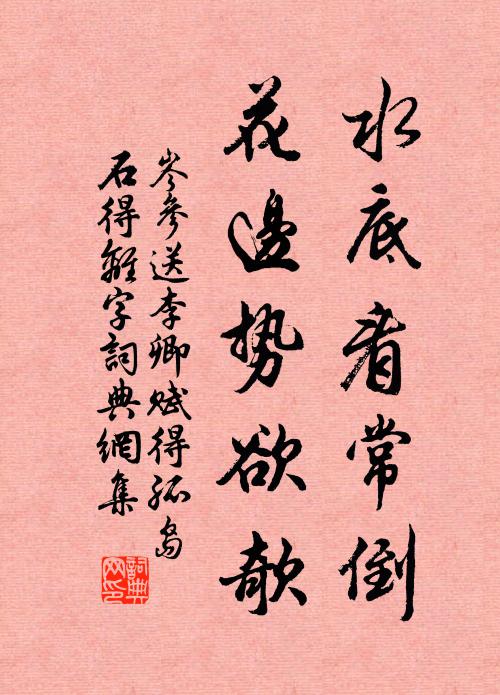 水底看常倒
花邊势欲欹
岑參送李卿赋得孤島
石得離字詞典網集
詞典
网印